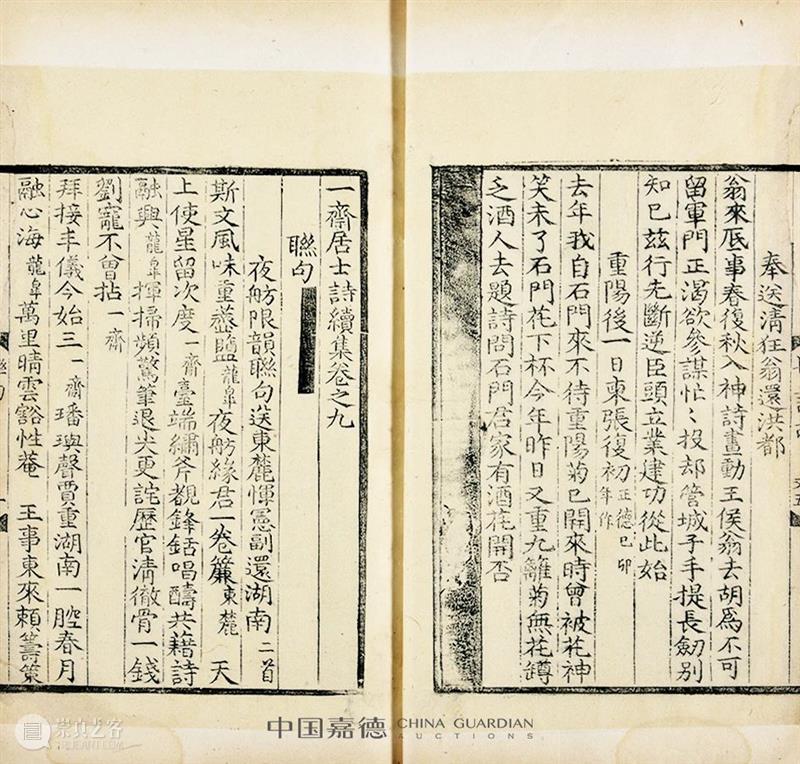 奉送清狂翁還洪都
翁來底事春復秋入神詩畫動王侯翁去胡為不可
留軍門正渴欲參謀忙〻投却管城子手提長劒別
知己茲行先斷逆臣頭立業建功從此始
重陽後一日柬張復初正德己卯年作
去年我自石門來不待重陽菊已開來時曾被花神
笑未了石門花下杯今年昨日又重九籬菊無花罇
乏酒人去題詩問石門君家有酒花開否
一齋居士詩續集卷之九
聯句
夜舫限韻聯句送東麓惲憲副還湖南二首
斯文風味重虀鹽龍臯夜舫緣君一卷簾東麓天
上使星留次度一齋臺端繡斧覩鋒銛唱醻共藉詩
融興龍臯揮掃頻驚筆退尖更詫歷官清徹骨一錢
劉寵不曾拈一齋
拜接丰儀今始三一齋璠璵聲賈重湖南一腔春月
融心海龍臯萬里晴雲豁性菴王事東來頼籌策
聯句
崇真艺客
中国嘉德 CHINA GUARDIAN
AUCTIONS